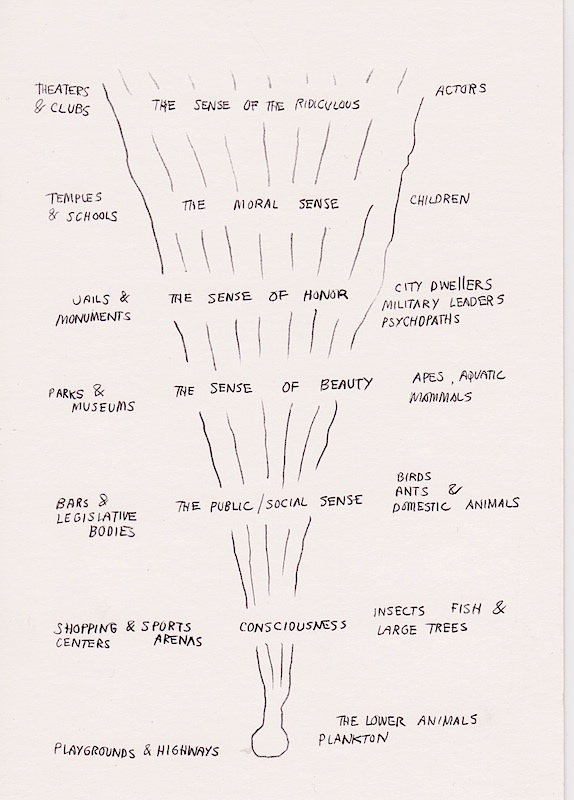 THEATERS
& CLUBS
THE SENSE OF THE RIDICULOUS
ACTORS
TEMPLES
& SCHOOLS
THE MORAL SENSE
CHILDREN
JAILS &
MONUMENTS
THE SENSE OF HONOR
CITY DWEllERS
MILITARY LEADERS
PSYCHOPATHS
PARKS &
MUSEUMS
THE SENSE OF BEAUTY
APES, AQUATIC
MAMMALS
BARS &
LEGISLATIVE
BODIES
THE PUBLIC/SOCIAL SENSE
BIRDS
ANTS &
DOMESTIC ANIMALS
SHOPPING & SPORTS
CENTERS ARENAS
CONSCIOUSNESS
INSECTS FISH &
LARGE TREES
PLAYGROUNDS & HIGHWAYS
THE LOWER ANIMALS
PLANKTON